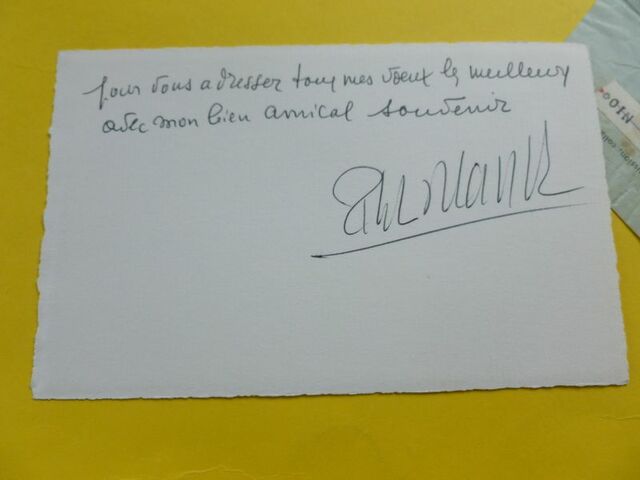 pour vous adresser tous mes vœux les meilleurs
avec mon bien amical souvenir
N100